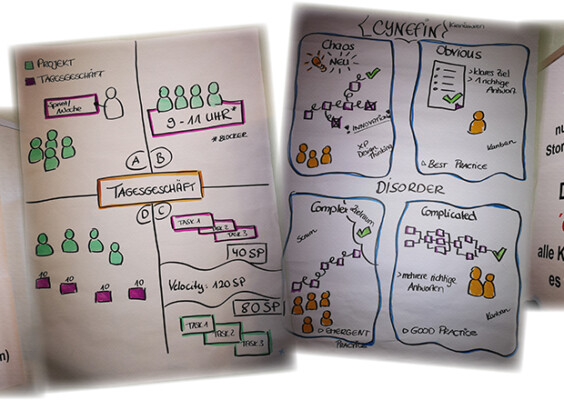 PROJEKT
TAGESGESCHÄFT
Sprint/
Woche
9-11 UHR*
*BLOCKER
A
B
TAGESGESCHÄFT
D
C
TASK 1
TASK 2
TASK 3
40 SP
10
10
10
10
Velocity: 120 SP
80 SP
TASK 1
TASK 2
TASK 3
CYNEFIN
Chaos
NEU
Innovation
XP
Design
Thinking
Obvious
> klares Ziel
> 1 richtige
Antwort
Kanban
BEST PRACTICE
DISORDER
Complex
Zeitraum
Scrum
EMERGENT
PRACTICE
Complicated
> mehrere richtige
Antworten
Kanban
GOOD PRACTICE
alle K
es